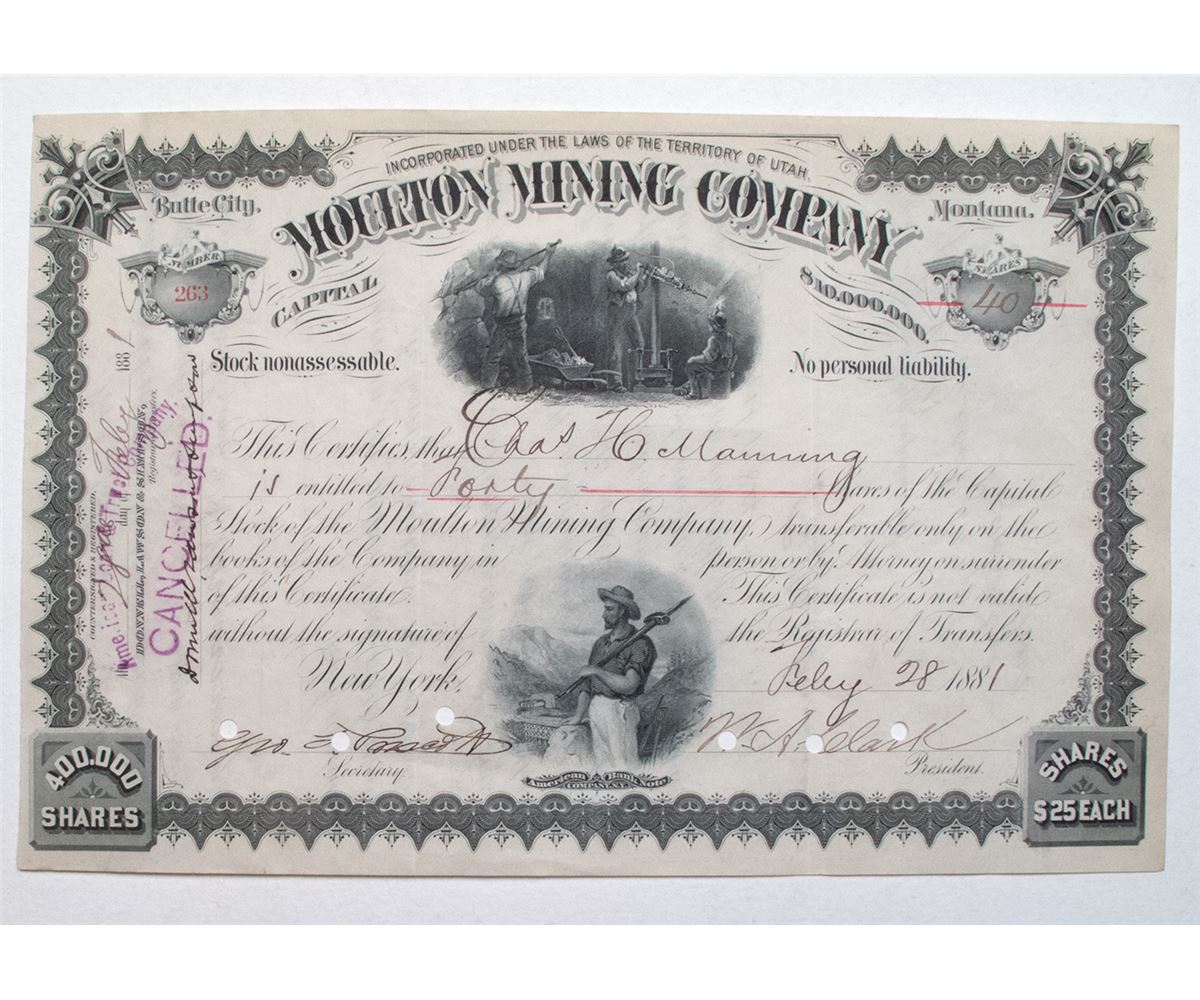 INCORPORATED UNDER THE LAWS OF THE TERRITORY OF UTAH.
MOULTON MINING COMPANY
Butte City,
Montana.
NUMBER
263
SHARES
40
CAPITAL
$10.000.000.
Stock nonassessable.
No personal liability.
This Certifies, that Chas H. Manning
is entitled to Forty Shares of the Capital
Stock of the Moulton Mining Company, transferable only on the
books of the Company in person or by Attorney on surrender
of this Certificate. This Certificate is not valid
without the signature of the Registrar of Transfers.
New York, Feby 28 1881
Geo.
W. A. Clark
Secretary.
President.
American Bank Note
COMPANY, N.Y.
400.000
SHARES
SHARES
$25 EACH
COUNTERSIGNED & REGISTERED,
day of Feby 1881
DONNELL, LAWSON & SIMPSON,
Registrar of Transfers.
CANCELLED.
Donnell Lawson & Simpson